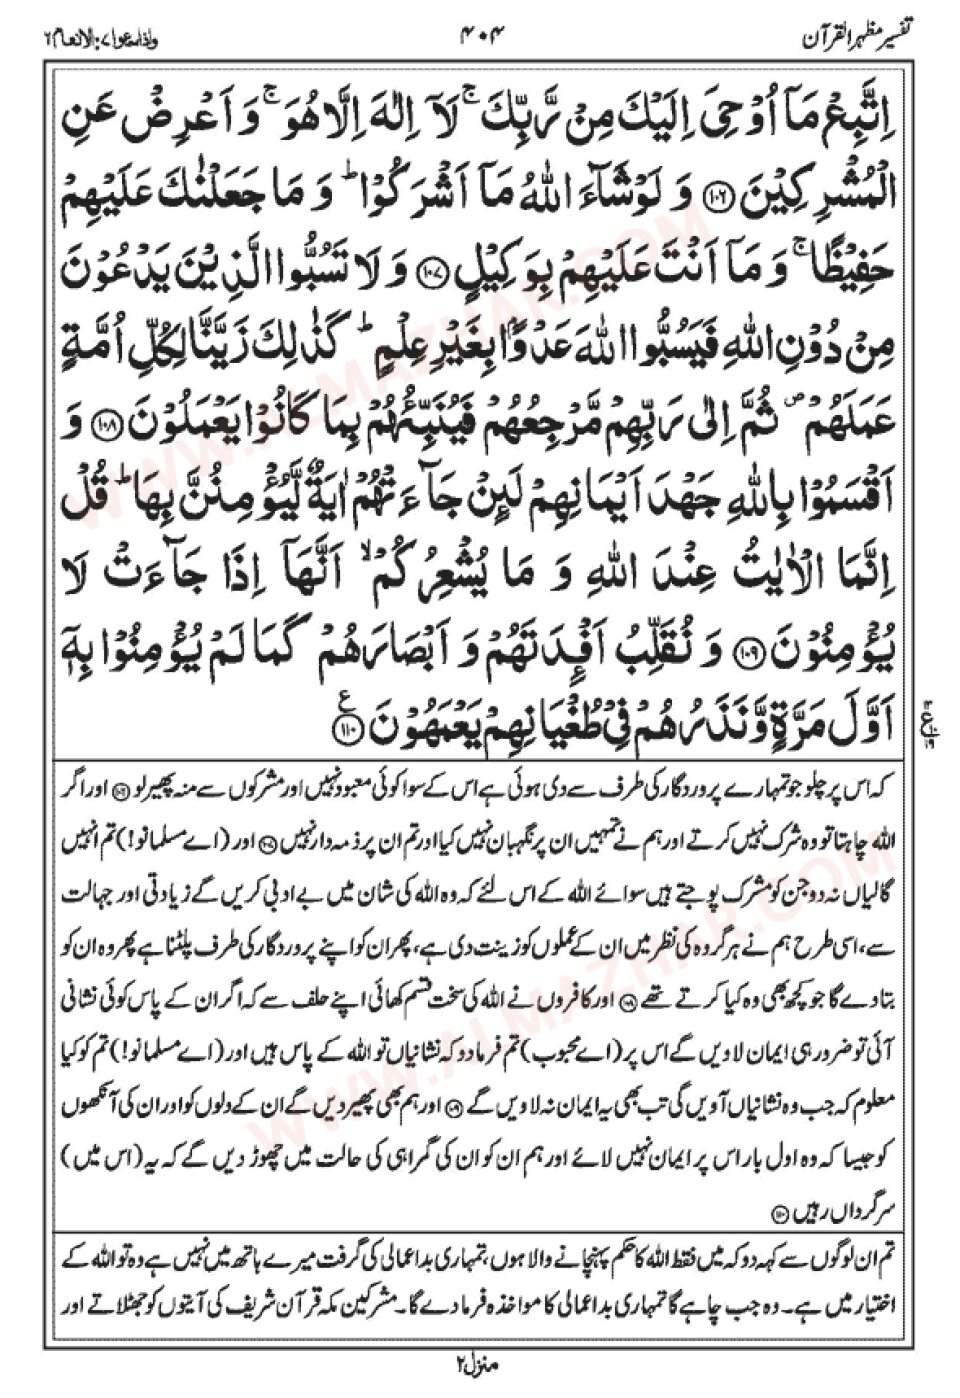 تفسیر مظہرالقرآن
۴۰۴
واذا سمعوا ۷: الانعام ۶
اِتَّبِعْ مَاۤ اُوْحِیَ اِلَیْكَ مِنْ رَّبِّكَ ۚ لَاۤ اِلٰهَ اِلَّا هُوَ ۚ وَ اَعْرِضْ عَنِ
الْمُشْرِكِیْنَ ۝۱۰۶ وَ لَوْ شَآءَ اللّٰهُ مَاۤ اَشْرَكُوْا ؕ وَ مَا جَعَلْنٰكَ عَلَیْهِمْ
حَفِیْظًا ۚ وَ مَاۤ اَنْتَ عَلَیْهِمْ بِوَكِیْلٍ ۝۱۰۷ وَ لَا تَسُبُّوا الَّذِیْنَ یَدْعُوْنَ
مِنْ دُوْنِ اللّٰهِ فَیَسُبُّوا اللّٰهَ عَدْوًۢا بِغَیْرِ عِلْمٍ ؕ كَذٰلِكَ زَیَّنَّا لِكُلِّ اُمَّةٍ
عَمَلَهُمْ ۪ ثُمَّ اِلٰى رَبِّهِمْ مَّرْجِعُهُمْ فَیُنَبِّئُهُمْ بِمَا كَانُوْا یَعْمَلُوْنَ ۝۱۰۸ وَ
اَقْسَمُوْا بِاللّٰهِ جَهْدَ اَیْمَانِهِمْ لَىِٕنْ جَآءَتْهُمْ اٰیَةٌ لَّیُؤْمِنُنَّ بِهَا ؕ قُلْ
اِنَّمَا الْاٰیٰتُ عِنْدَ اللّٰهِ وَ مَا یُشْعِرُكُمْ ۙ اَنَّهَاۤ اِذَا جَآءَتْ لَا
یُؤْمِنُوْنَ ۝۱۰۹ وَ نُقَلِّبُ اَفْـِٕدَتَهُمْ وَ اَبْصَارَهُمْ كَمَا لَمْ یُؤْمِنُوْا بِهٖۤ
اَوَّلَ مَرَّةٍ وَّ نَذَرُهُمْ فِیْ طُغْیَانِهِمْ یَعْمَهُوْنَ ۝۱۱۰ ع
کہ اس پر چلو جو تمہارے پروردگار کی طرف سے دی ہوئی ہے اس کے سوا کوئی معبود نہیں اور مشرکوں سے منہ پھیر لو ۝۱۰۶ اور اگر
اللہ چاہتا تو وہ شرک نہیں کرتے اور ہم نے تمہیں ان پر نگہبان نہیں کیا اور تم ان پر ذمہ دار نہیں ۝۱۰۷ اور (اے مسلمانو!) تم انہیں
گالیاں نہ دو جن کو مشرک پوجتے ہیں سوائے اللہ کے اس لئے کہ وہ اللہ کی شان میں بے ادبی کریں گے زیادتی اور جہالت
سے، اسی طرح ہم نے ہر گروہ کی نظر میں ان کے عملوں کو زینت دی ہے، پھر ان کو اپنے پروردگار کی طرف پلٹنا ہے پھر وہ ان کو
بتا دے گا جو کچھ بھی وہ کیا کرتے تھے ۝۱۰۸ اور کافروں نے اللہ کی سخت قسم کھائی اپنے حلف سے کہ اگر ان کے پاس کوئی نشانی
آئی تو ضرور ہی ایمان لاویں گے اس پر (اے محبوب) تم فرما دو کہ نشانیاں تو اللہ کے پاس ہیں اور (اے مسلمانو!) تم کو کیا
معلوم کہ جب وہ نشانیاں آویں گی تب بھی یہ ایمان نہ لاویں گے ۝۱۰۹ اور ہم بھی پھیر دیں گے ان کے دلوں کو اور ان کی آنکھوں
کو جیسا کہ وہ اول بار اس پر ایمان نہیں لائے اور ہم ان کو ان کی گمراہی کی حالت میں چھوڑ دیں گے کہ یہ (اس میں)
سرگرداں رہیں ۝۱۱۰
تم ان لوگوں سے کہہ دو کہ میں فقط اللہ کا حکم پہنچانے والا ہوں، تمہاری بداعمالی کی گرفت میرے ہاتھ میں نہیں ہے وہ تو اللہ کے
اختیار میں ہے۔ وہ جب چاہے گا تمہاری بداعمالی کا مواخذہ فرما دے گا۔ مشرکین مکہ قرآن شریف کی آیتوں کو جھٹلاتے اور
منزل ۲
WWW.ALMAZHAR.COM
WWW.ALMAZHAR.COM